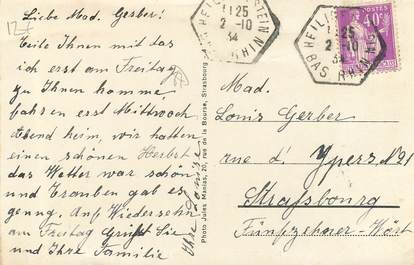 Liebe Mad. Gerber!
Teile Ihnen mit das
ich erst am Freitag
zu Ihnen komme,
fahren erst Mittwoch
Abend heim, wir hatten
einen schönen Herbst
das Wetter war schön
und Trauben gab es
genung. Auf Wiedersehn
am Freitag Grüßt Sie
und Ihre Familie
Ihre Louise
Photo Jules Manias, 20, rue de la Bourse, Strasbourg
11 25
2 -10
34
BAS RHIN
11 25
2 -10
34
BAS RHIN
40c
Mad.
Louis Gerber
rue d' Ypers N21
Strassbourg
Fünfzehner-Wört